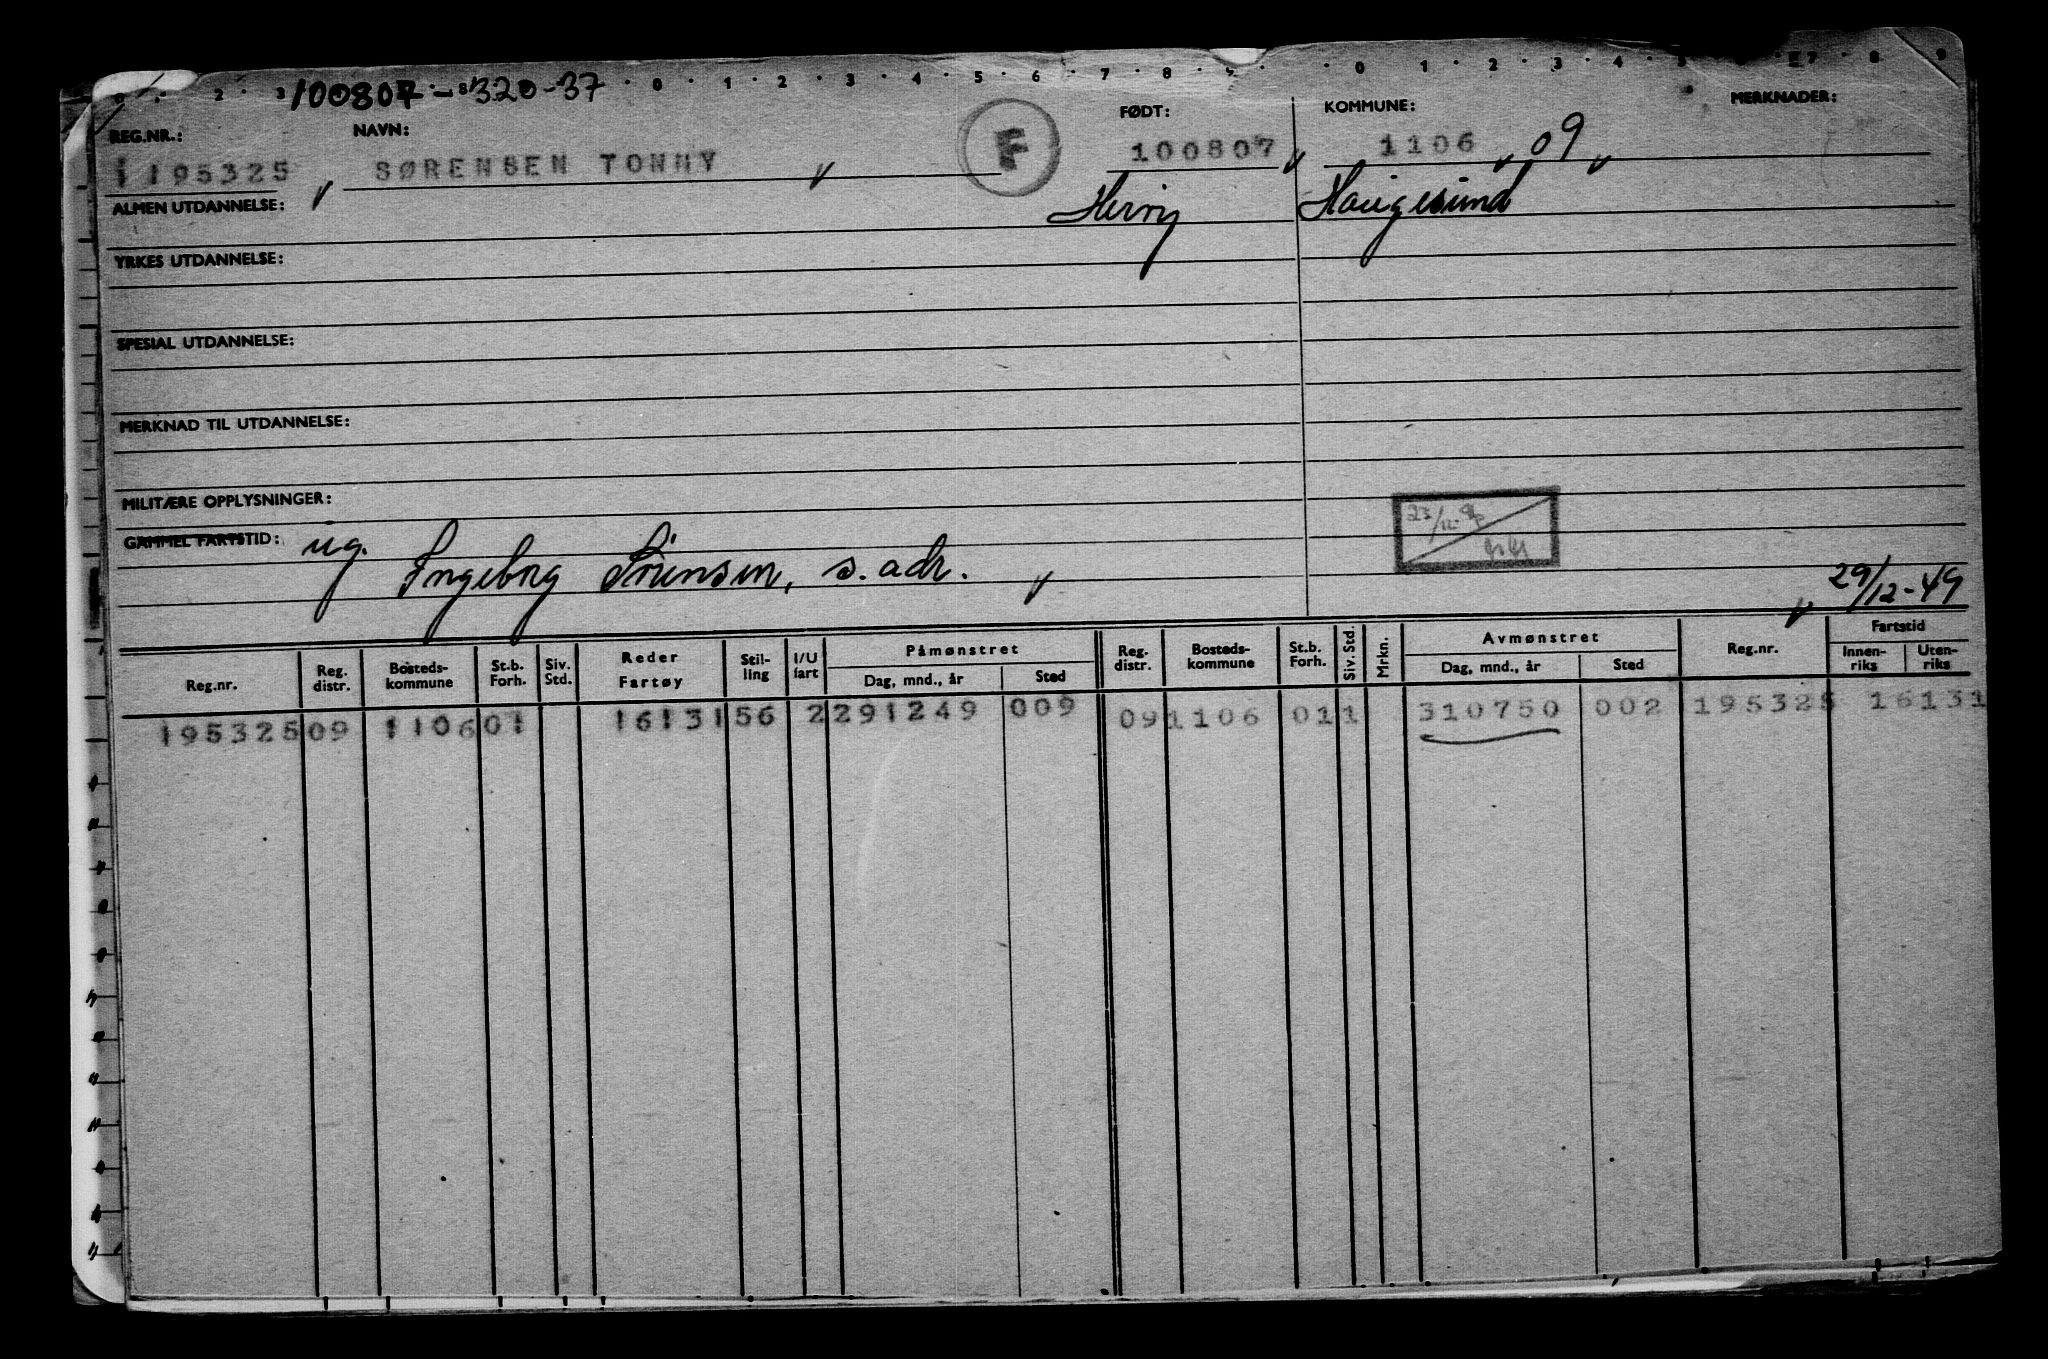 100807-320-37
REG.NR.: NAVN: FØDT: KOMMUNE: MERKNADER:
1195325 SØRENSEN TONNY F 100807 1106 09
ALMEN UTDANNELSE: Herøy Haugesund
YRKES UTDANNELSE:
SPESIAL UTDANNELSE:
MERKNAD TIL UTDANNELSE:
MILITÆRE OPPLYSNINGER:
GAMMEL FARTSTID: ug. Ingeborg Sørensen, s. adr.
29/12-49
Påmønstret Avmønstret Fartstid
Reg.nr. Reg. distr. Bosteds-kommune St.b. Forh. Siv. Std. Reder Fartøy Stil-ling I/U fart Dag, mnd., år Sted Reg. distr. Bosteds-kommune St.b. Forh. Siv. Std. Mrkn. Dag, mnd., år Sted Reg.nr. Innen-riks Uten-riks
195325 09 1106 01 16131 56 2 291249 009 09 1106 01 1 310750 002 195325 16131